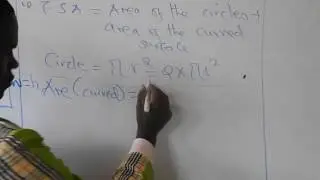 T.S.A = Area of the circles +
area of the curved
surface
Circle = πr² = 2 x πr²
Are (curved) =